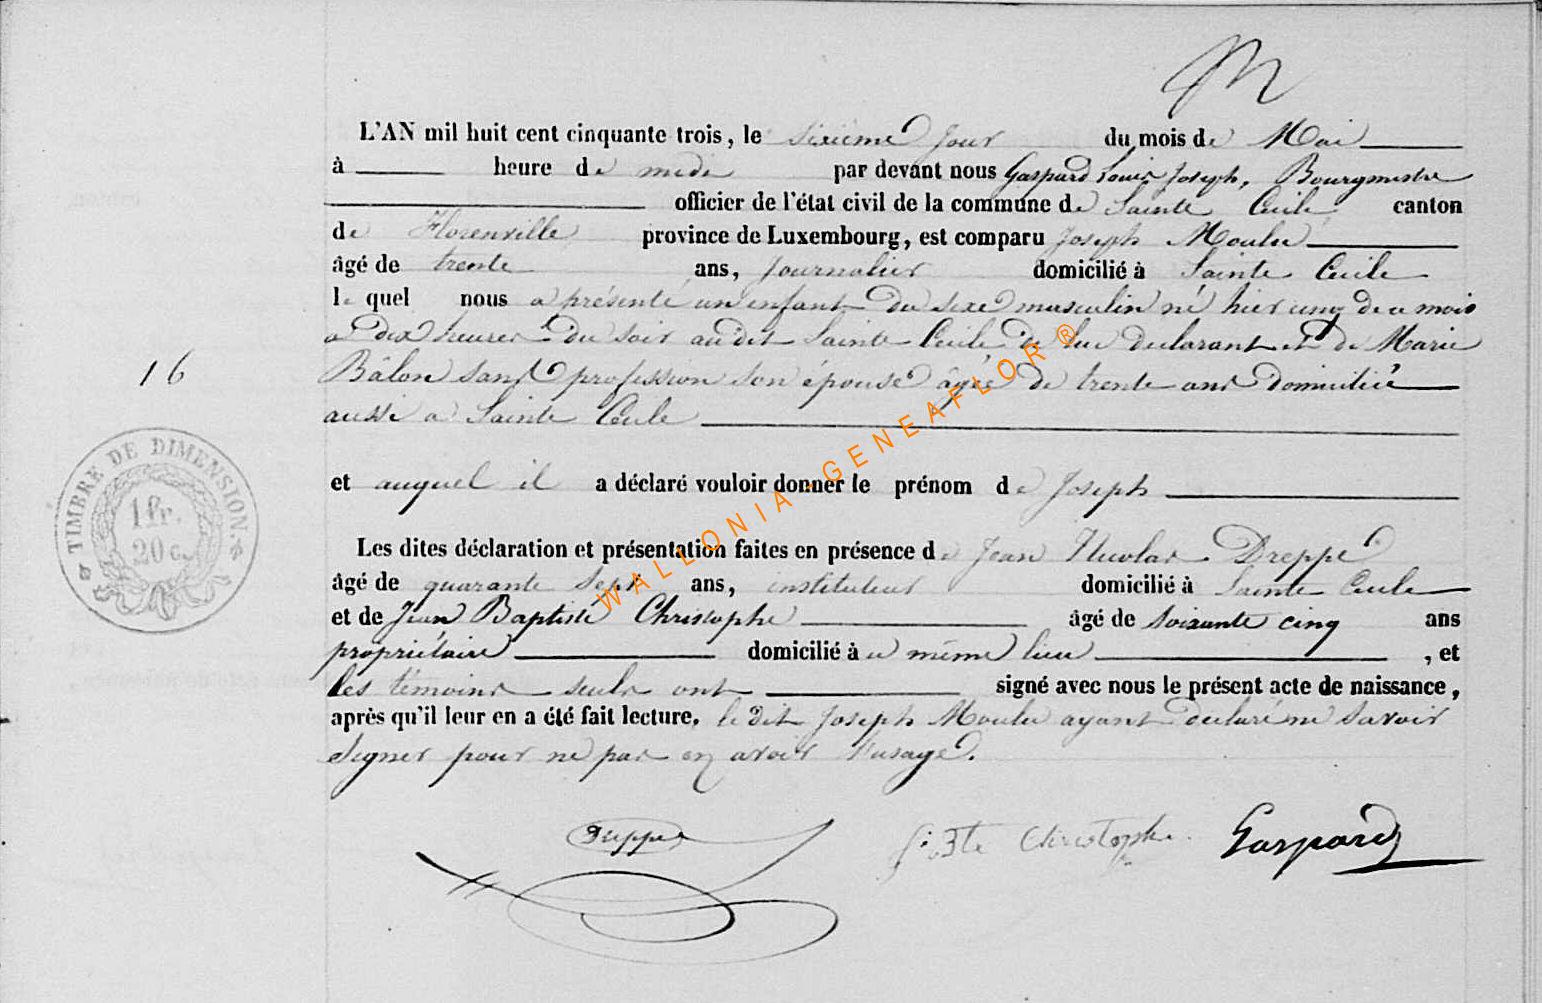 M
L'AN mil huit cent cinquante trois, le sixième Jour du mois de Mai
à heure de midi par devant nous Gaspard Louis Joseph, Bourgmestre
officier de l'état civil de la commune de Sainte Cecile canton
de Florenville province de Luxembourg, est comparu Joseph Moulu
âgé de trente ans, Journalier domicilié à Sainte Cecile
le quel nous a présenté un enfant du sexe masculin né hier cinq de ce mois
a dix heures du soir audit Sainte Cecile de lui declarant et de Marie
Bâlon sans profession son épouse âgée de trente ans domiciliée
aussi a Sainte Cecile
16
TIMBRE DE DIMENSION.
1 fr.
20 c.
et auquel il a déclaré vouloir donner le prénom de Joseph
Les dites déclaration et présentation faites en présence de Jean Nicolas Dreppe
âgé de quarante Sept ans, instituteur domicilié à Sainte Cecile
et de Jean Baptiste Christophe âgé de soixante cinq ans
propriétaire domicilié à ce même lieu , et
les témoins seuls ont signé avec nous le présent acte de naissance,
après qu'il leur en a été fait lecture, le dit Joseph Moulu ayant declaré ne savoir
signer pour ne pas en avoir l'usage.
Dreppe
J: Bte Christophe.
Gaspard
WALLONIA - GENEAFLOR ®